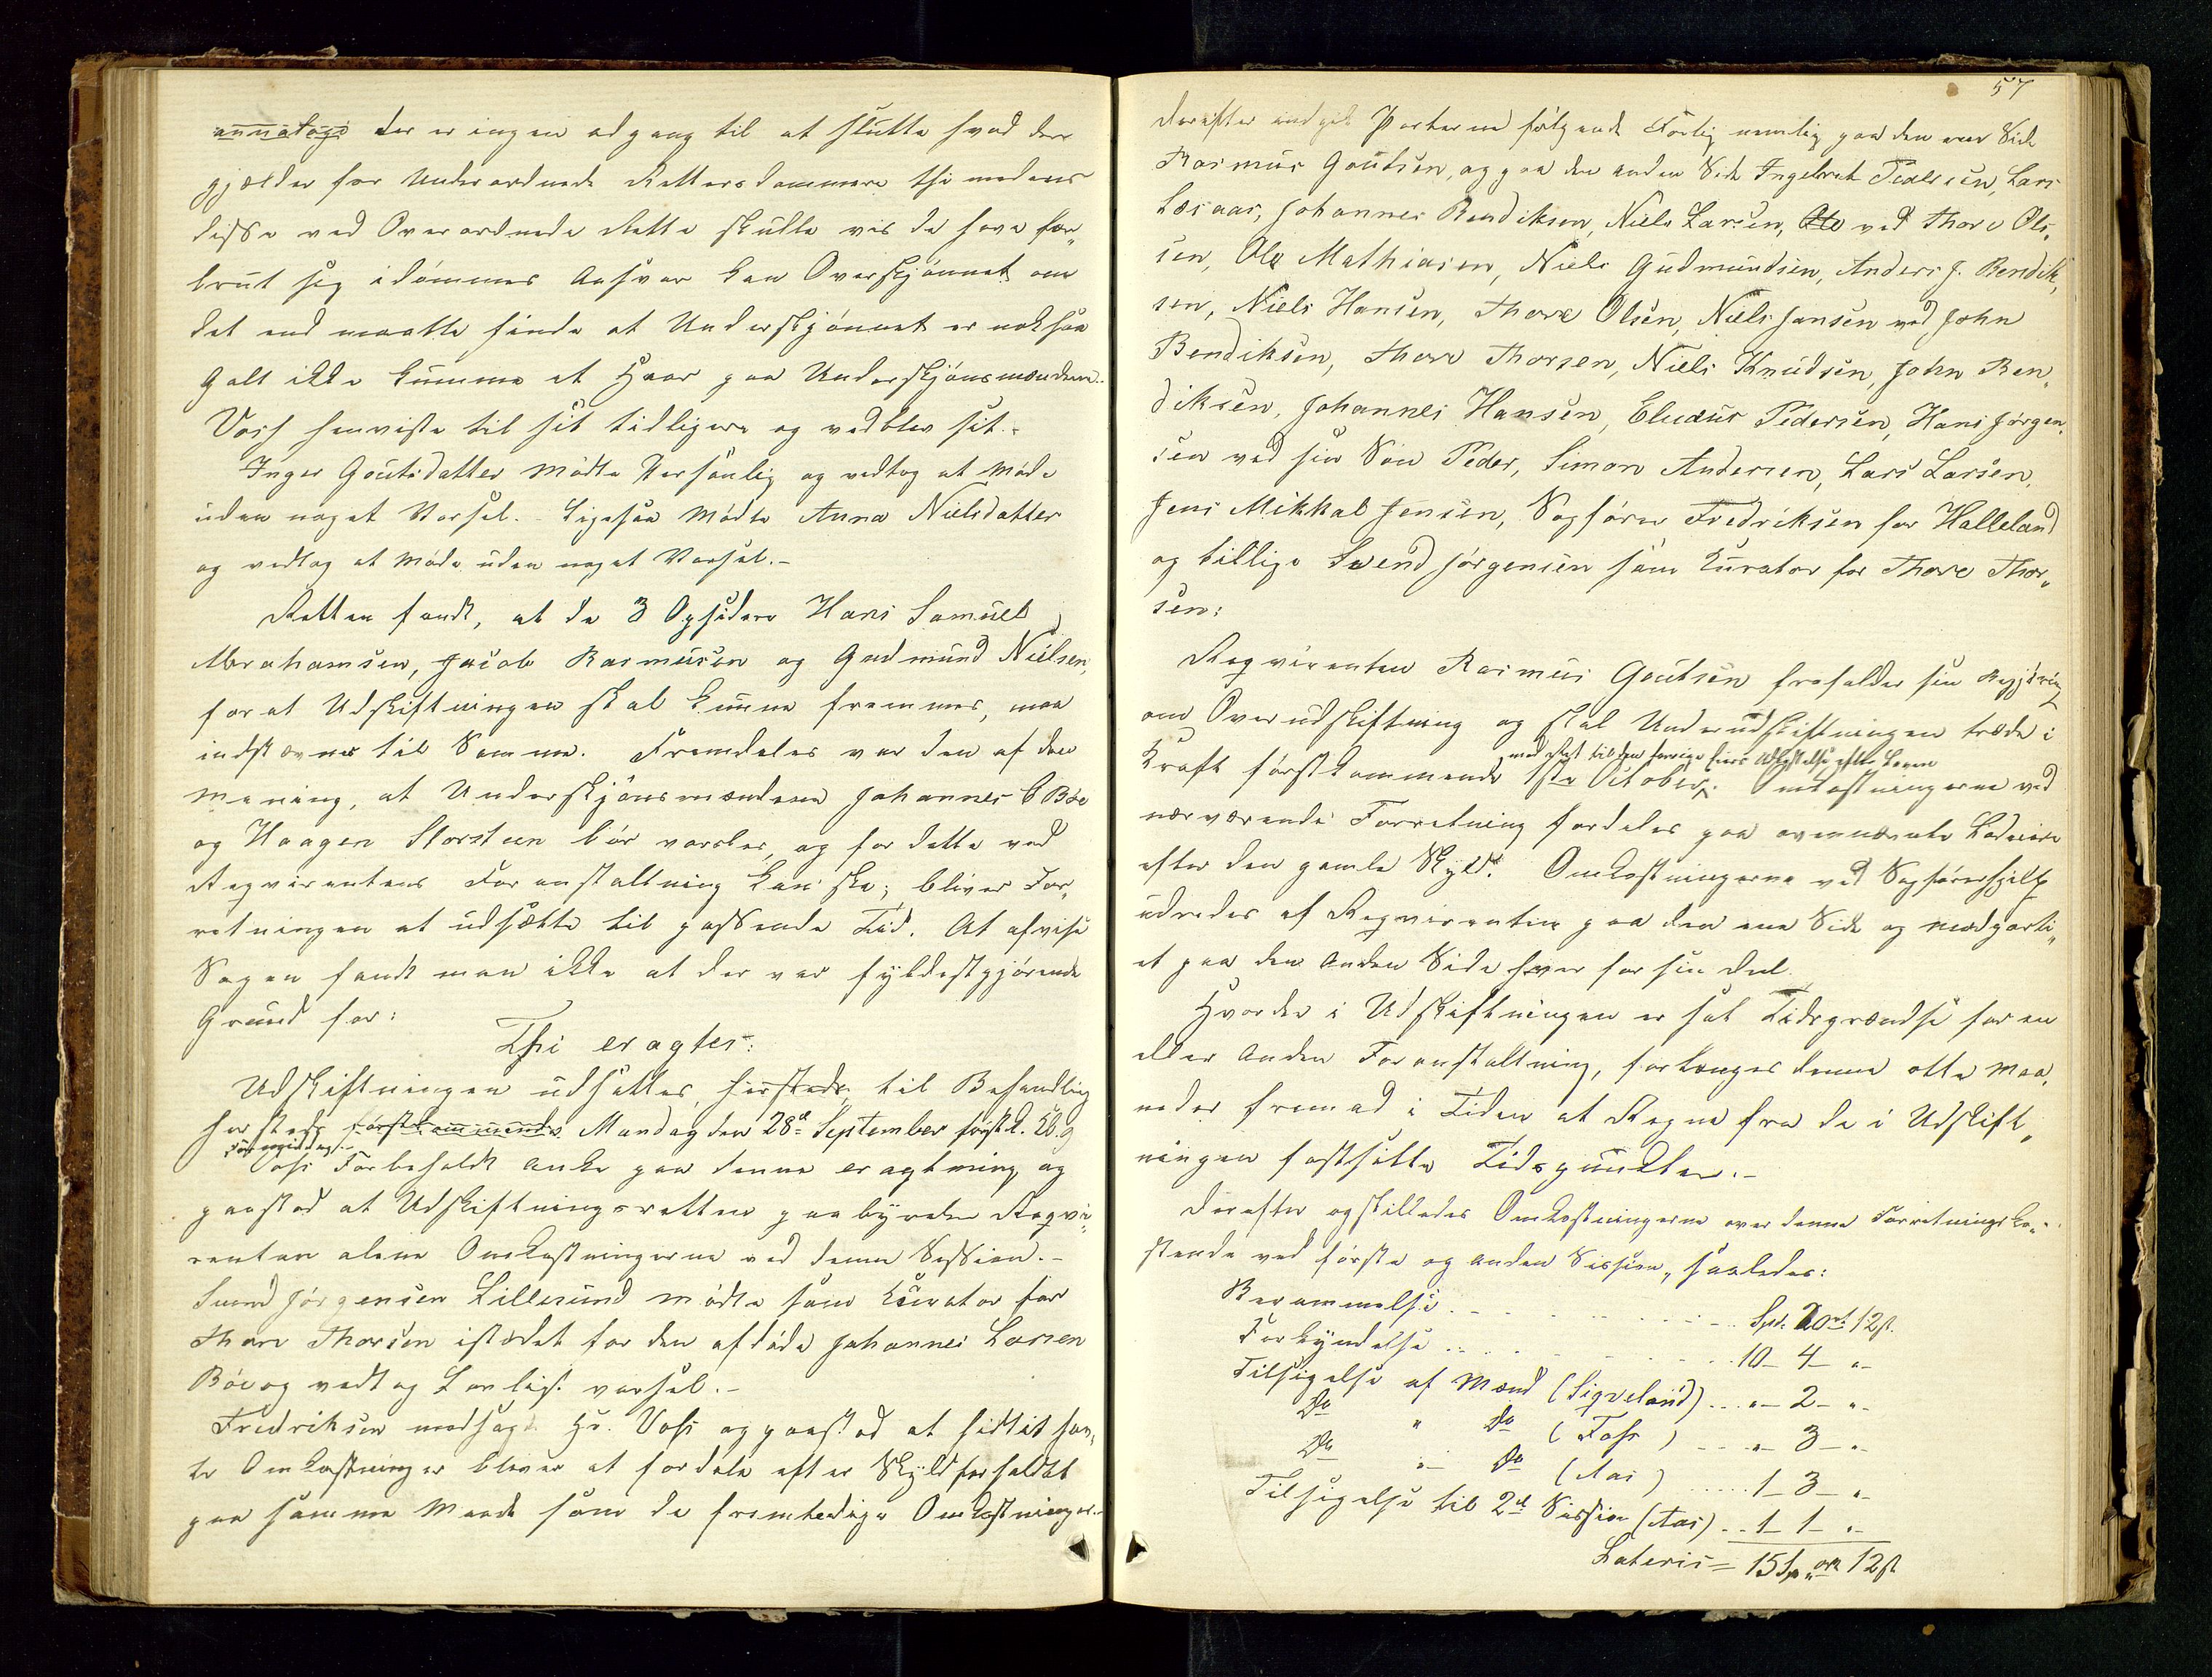 annatage der er ingen adgang til at slutte hvad der
gjælder for Underordnede Rettersdommere thi medens
disse ved Overordnede Rette skulle vis de have for„
brut sig idømmes Ansvar kan Overskjønnet om
det end maatte finde at Underskjønnet er noksaa
Galt ikke kumme et Haar paa Underskjønsmændene.
Voss henviste til sit tidligere og vedblev sit.
Inger Goutsdatter mødte Personlig og vedtog at Møde
uden noget Varsel. Ligesaa Mødte Anna Nielsdatter
og vedtog at Møde uden noget Varsel.-
Retten fandt, at de 3 Opsidere Hans Samuel
Abrahamsen, Jacob Rasmusen og Gudmund Nielsen,
for at Udskiftningen skal kunne fremmes, maa
indstævnes til Samme. Fremdeles var den af den
Mening, at Underskjønsmændene Johannes C Bøe
og Haagen Storsteen bør varsles, og for dette ved
Reqvirentens Foranstaltning kan ske; bliver For„
retningen at udsætte til passende Tid. At afvise
Sagen fandt man ikke at der var fyldestgjørende
Grund for:
Thi eragtes:
Udskiftningen udsættes, hersteds, til Behandling
hersteds førstkommende Mandag den 28de September førstk. Kl. 9
Formiddag.-
Voss Forbeholdt Anke paa denne eragtning og
paastod at Udskiftningsretten paabyrder Reqvi„
renten alene Omkostningerne ved denne Session.-
Svend Jørgensen Lillesund mødte som Kurator for
Thore Thorsen istedet for den afdøde Johannes Larsen
Bøe og vedtog Lovligt varsel.-
Fredriksen modsagde Hr. Voss og paastod at hidtil hav„
te Omkostninger bliver at fordele efter Skyldforholdet
paa samme Maade som de fremtidige Omkostninger.-
57
Derefter indgik Parterne følgende Forlig nemlig paa den ene Side
Rasmus Goutsen, og paa den anden Side Ingebret Pedersen, Lars
Larsaas, Johannes Bendiksen, Niels Larsen, Ole ved Thore Ols„
sen, Ole Mathiasen, Niels Gudmundsen, Anders J. Bendik„
sen, Niels Hansen, Thore Olsen, Niels Jansen ved John
Bendiksen, Thore Thorsen, Niels Knudsen, John Ben„
diksen, Johannes Hansen, Eludus Pedersen, Hans Jørgen„
sen ved sin Søn Peder, Simon Andersen, Lars Larsen,
Jens Mikkal Jensen, Sagfører Fredriksen for Halleland
og tillige Svend Jørgensen som Kurator for Thore Thor„
sen:
Reqvirenten Rasmus Goutsen frafalder sin Begjæring
om Overudskiftning og skal Underudskiftningen træde i
med Ret til den forrige Eiers Udflyttelse efter Loven
Kraft førstkommende 1ste October. Omkostningerne ved
nærværende Forretning fordeles paa ovennævnte Lodeiere
efter den gamle Skyld. Omkostningerne ved Sagførerhjelp
udredes af Reqvirenten paa den ene Side og Modparti„
et paa den Anden Side hver for sin Deel.
Hvor der i Udskiftningen er sat Tidsgrændse for en
eller Anden Foranstaltning, forlænges denne otte Maa„
neder fremad i Tiden at Regne fra de i Udskift„
ningen fastsatte Tidspunkter.-
Derefter opstilledes Omkostningerne over denne Forretning be„
staende ved første og anden Session, saaledes:
Berammelse . . . . . Spd. 2 0rt 12ß.
Forkyndelse . . . . . 10- 4- „-
Tilsigelse af Mænd (Sigveland) . . . „- 2- „-
Do „ Do (Foss) . . . „- 3- „-
Do „- Do (Aas) . . . 1- 3- „-
Tilsigelse til 2de Session (Aas) . . 1- 1- „-
Lateris = 15 Sp „ort 12ß